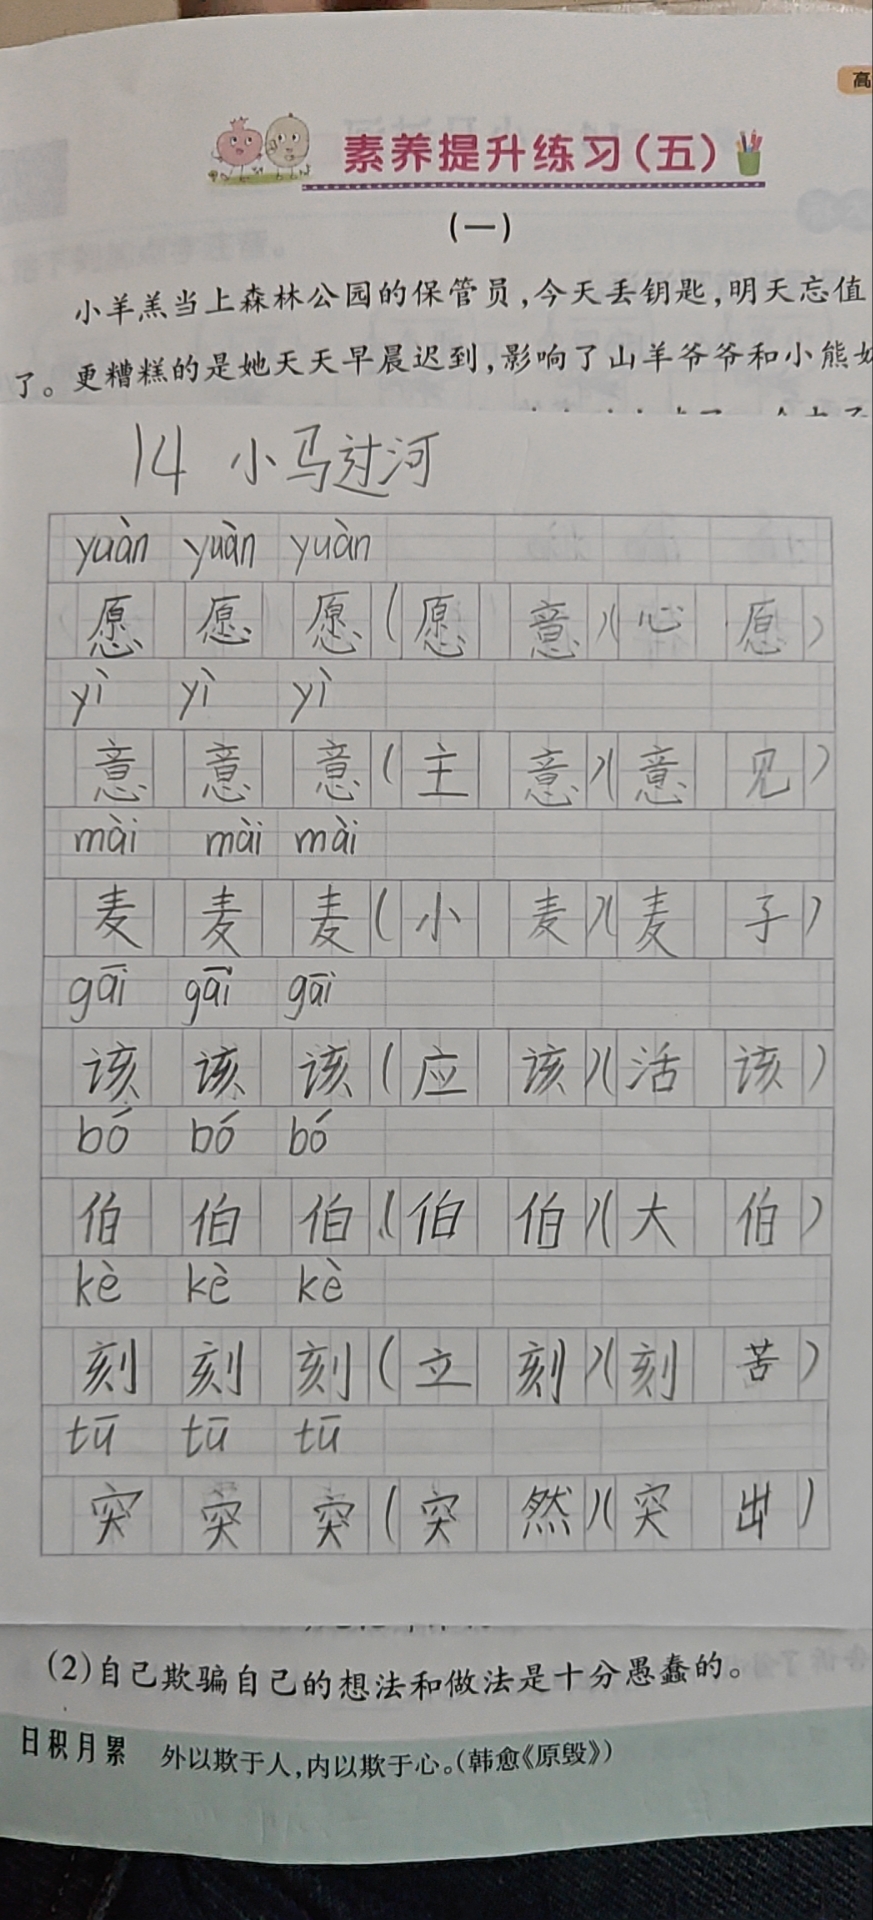 高
素养提升练习(五)
(一)
小羊羔当上森林公园的保管员,今天丢钥匙,明天忘值
了。更糟糕的是她天天早晨迟到,影响了山羊爷爷和小熊
14 小马过河
yuàn yuàn yuàn
愿 愿 愿(愿 意)(心 愿)
yì yì yì
意 意 意(主 意)(意 见)
mài mài mài
麦 麦 麦(小 麦)(麦 子)
gāi gāi gāi
该 该 该(应 该)(活 该)
bó bó bó
伯 伯 伯(伯 伯)(大 伯)
kè kè kè
刻 刻 刻(立 刻)(刻 苦)
tū tū tū
突 突 突(突 然)(突 出)
(2)自己欺骗自己的想法和做法是十分愚蠢的。
日积月累 外以欺于人,内以欺于心。(韩愈《原毁》)